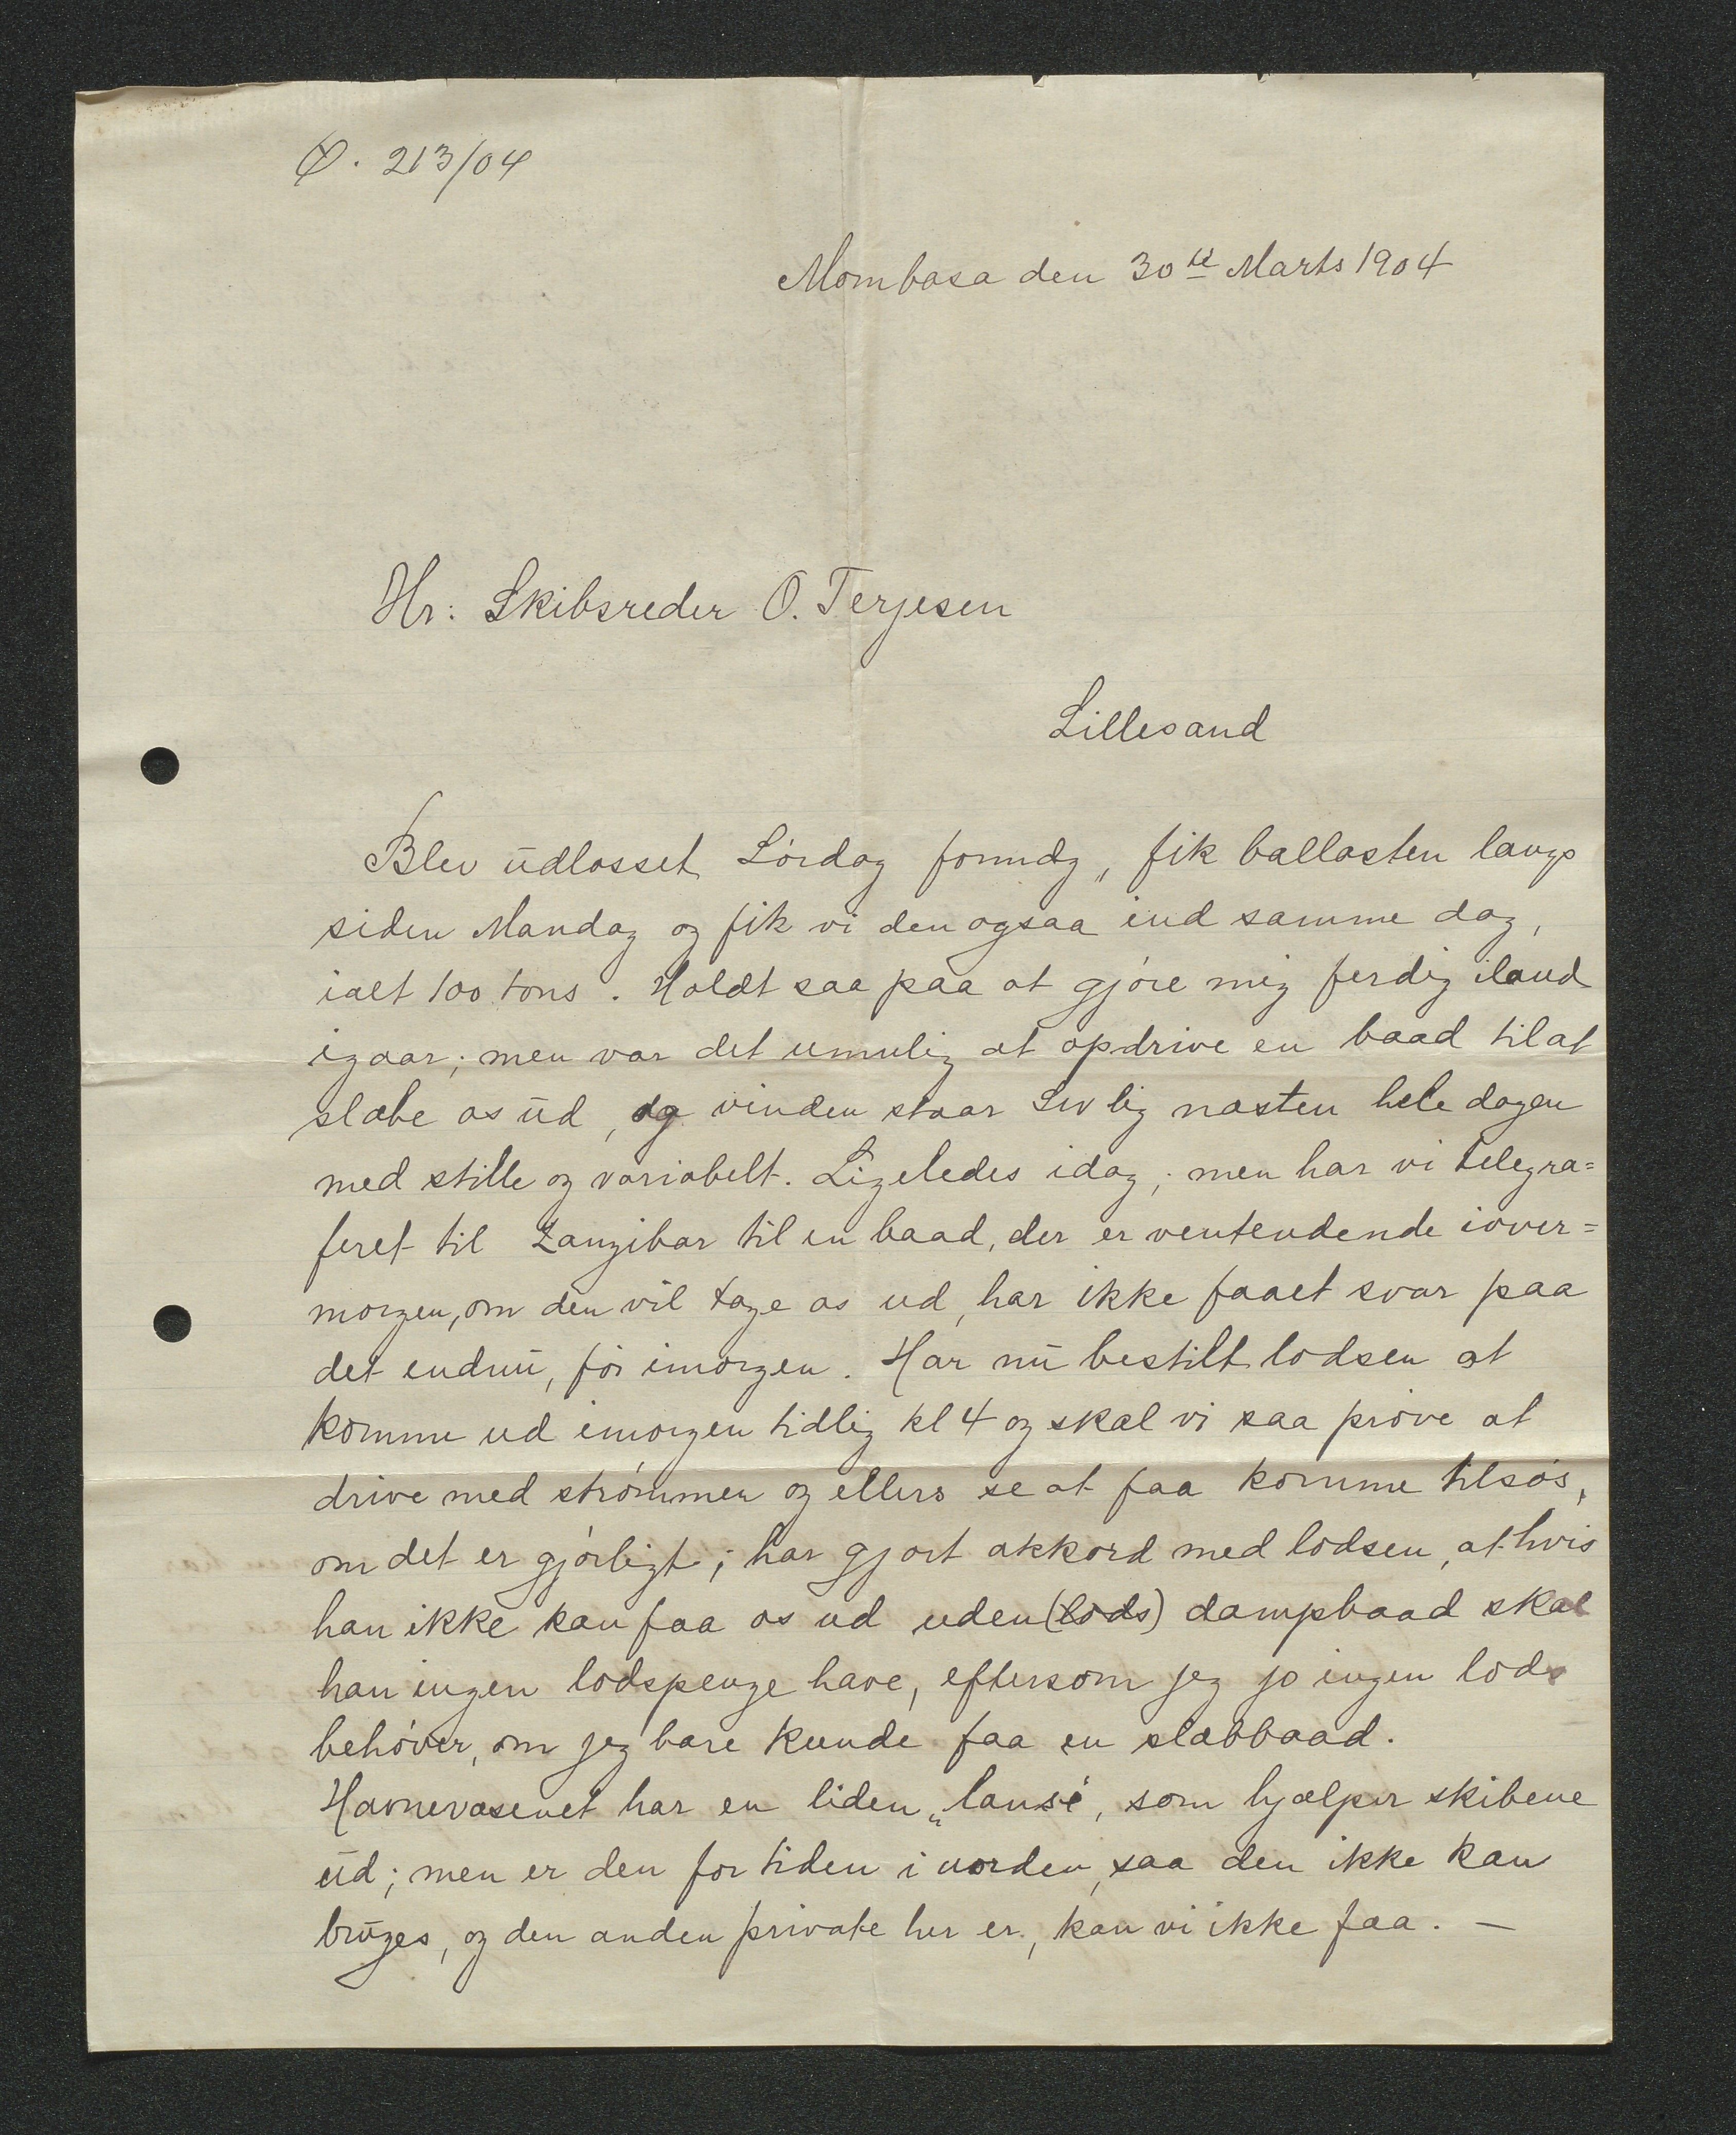 213/04
Mombasa den 30te Marts 1904
Hr: Skibsreder O. Terjesen
Lillesand
Blev udlosset Lórdag formdg„ fik ballasten langs
siden Mandag og fik vi den ogsaa ind samme dag,
ialt 100 tons. Holdt saa paa at gjóre mig ferdig iland
igaar; men var det umulig at opdrive en baad til at
slæbe os ud, og vinden staar Sydlig næsten hele dagen
med stille og variabelt. Ligeledes idag; men har vi telegra=
feret til Zanzibar til en baad, der er ventendende iover=
morgen, om den vil tage os ud, har ikke faaet svar paa
det endnu, fór imorgen. Har nu bestilt lodsen at
komme ud imorgen tidlig kl 4 og skal vi saa próve at
drive med strómmen og ellers se at faa komme tilsós,
om det er gjórligt; har gjort akkord med lodsen, at hvis
han ikke kan faa os ud uden (lods) dampbaad skal
han ingen lodspenge have, eftersom jeg jo ingen lods
behóver, om jeg bare kunde faa en slæbbaad.
Havnevæsenet har en liden „lanse", som hjælper skibene
ud; men er den for tiden i uorden, saa den ikke kan
bruges, og den anden private her er, kan vi ikke faa. —